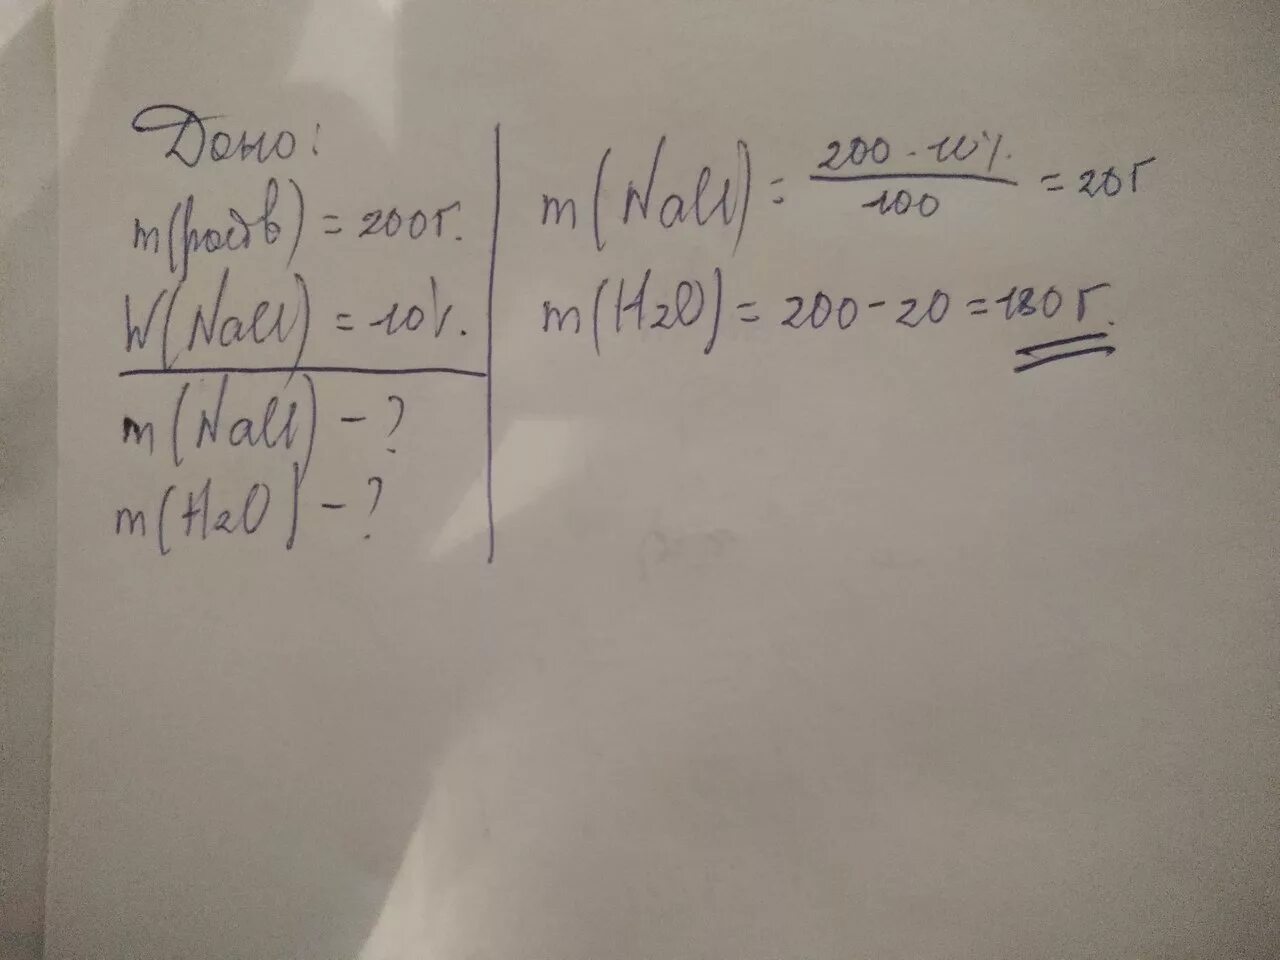 Дано:
m(раств) = 200г.
W(NaCl) = 10%.
m(NaCl) - ?
m(H2O) - ?
m(NaCl) = 200 · 10% / 100 = 20г
m(H2O) = 200 - 20 = 180г.